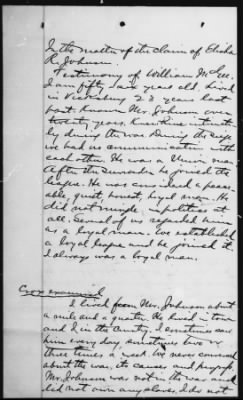 In the matter of the claim of Elisha
R. Johnson.
Testimony of William McGee.
I am fifty six years old. Lived
in Vicksburg 23 years last
past. Know Mr. Johnson over
twenty years. Knew him intimate
ly during the war. During the siege
we had no communication with
each other. He was a Union man.
After the surrender he joined the
league. He was considered a peace-
able quiet honest, loyal man. He
did not mingle in politics at
all. Several of us regarded him
as a loyal man. We established
a loyal league and he joined it.
I always was a loyal man.
Cross examined
I lived from Mr. Johnson about
a mile and a quarter. He lived in town
and I in the County. I sometimes saw
him every day, sometimes two or
three times a week. We never conversed
about the war, its causes and
Mr. Johnson was not in the war and
did not own any slaves. I do not